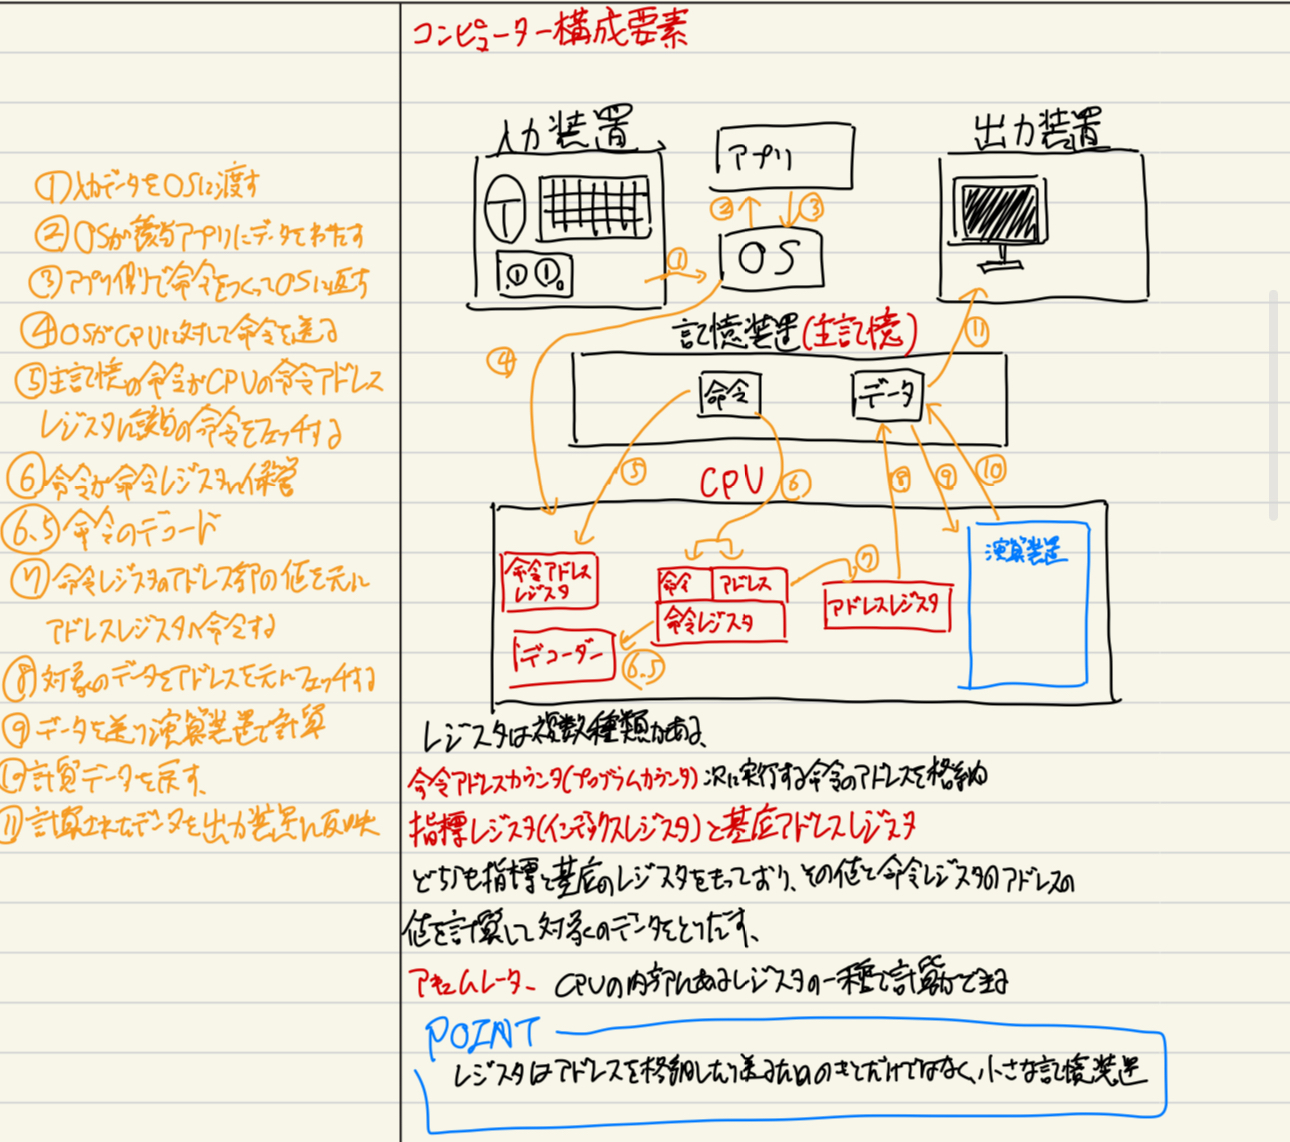 コンピューター構成要素
入力装置
アプリ
出力装置
②
③
OS
①
記憶装置(主記憶)
④
⑪
命令
データ
⑤
⑥
⑧
⑨
⑩
CPU
命令アドレス
レジスタ
命令
アドレス
命令レジスタ
⑦
アドレスレジスタ
演算装置
デコーダー
6.5
①入力データをOSに渡す
②OSが該当アプリにデータをわたす
③アプリ側で命令をつくってOSに返す
④OSがCPUに対して命令を送る
⑤主記憶の命令がCPUの命令アドレス
レジスタに該当の命令をフェッチする
⑥命令が命令レジスタに保管
6.5 命令のデコード
⑦命令レジスタのアドレス部の値を元に
アドレスレジスタへ命令する
⑧対象のデータをアドレスを元にフェッチする
⑨データを送り演算装置で計算
⑩計算データを戻す、
⑪計算されたデータを出力装置に反映
レジスタは複数種類がある、
命令アドレスカウンタ(プログラムカウンタ) 次に実行する命令のアドレスを格納
指標レジスタ(インデックスレジスタ)と基底アドレスレジスタ
どちらも指標と基底のレジスタをもっており、その値と命令レジスタのアドレスの
値を計算して対象のデータをとりだす、
アキュムレーター、CPUの内部にあるレジスタの一種で計算ができる
POINT
レジスタはアドレスを格納したり送るためのものだけではなく、小さな記憶装置